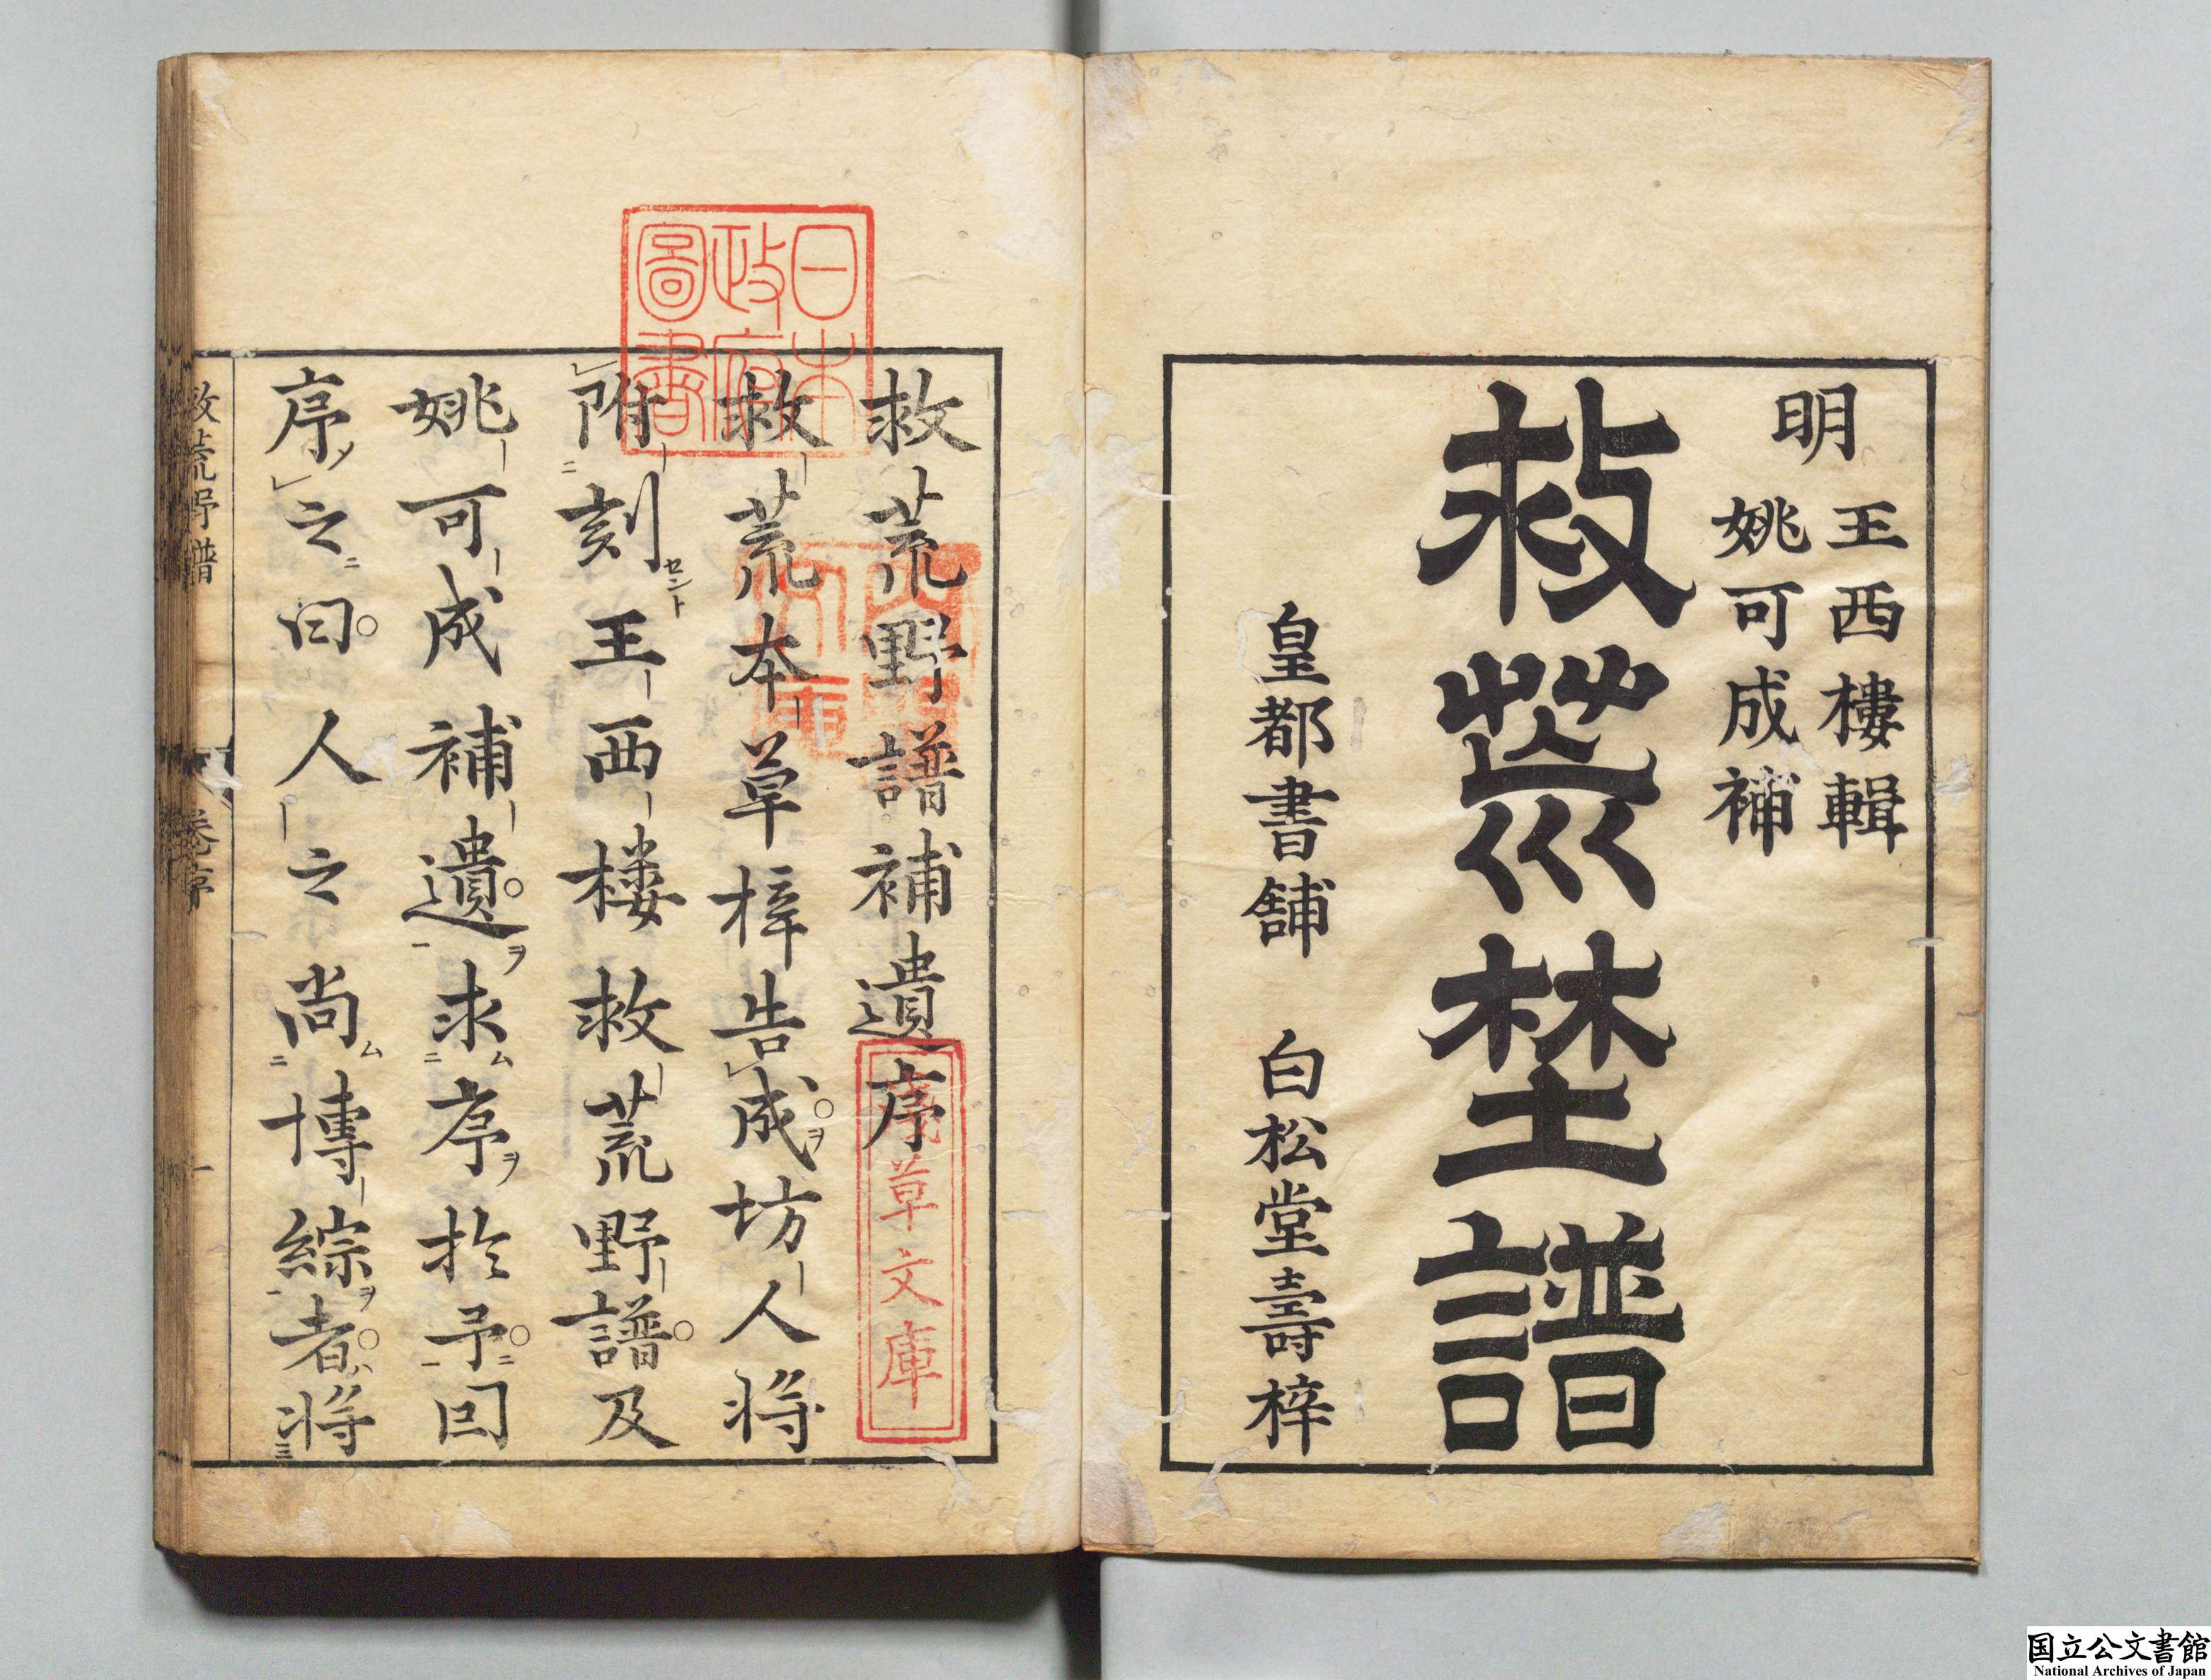 明
王西樓輯
姚可成補
救荒埜譜
皇都書舖 白松堂壽梓
救荒野譜補遺序
救荒本草梓告成坊人將
附刻王西樓救荒野譜及
姚可成補遺求序於予因
序之曰人之尚博綜者將
救荒野譜 卷序 一
日本
政府
圖書
淺草文庫
国立公文書館
National Archives of Japan